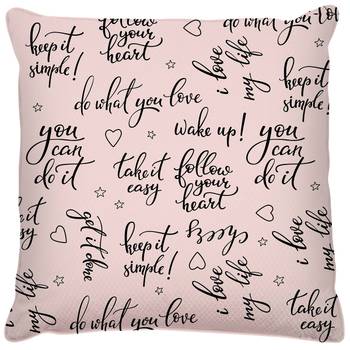 follow
your
heart
do what you love
keep it
simple!
i love
my life
keep it
simple!
do what you love
wake up!
you
can
do it
take it
easy
follow
your
heart
you
can
do it
get it done
keep it
simple!
i love
my life
take it
easy
i love
my life
do what you love